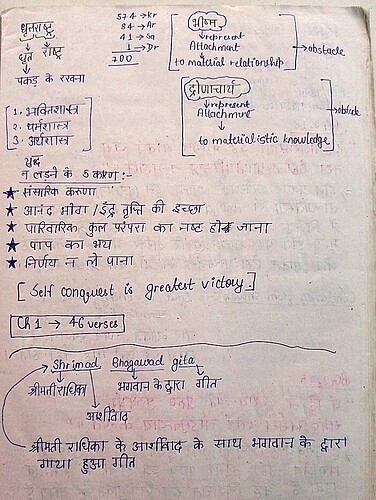 धृतराष्ट्र
धृत राष्ट्र
पकड़ के रखना
574 → Kr
84 → Ar
41 → Sa
1 → Dr
700
भीष्म
represent
Attachment
to material relationship
→ obstacle
द्रोणाचार्य
represent
Attachment
to materialistic knowledge
→ obstacle
1. भक्तिशास्त्र
2. धर्मशास्त्र
3. अर्थशास्त्र
युद्ध
न लड़ने के 5 कारण :-
★ संसारिक करुणा
★ आनंद भोग / इंद्र तृप्ति की इच्छा
★ पारिवारिक कुल परंपरा का नष्ट हो जाना
★ पाप का भय
★ निर्णय न ले पाना
[ Self conquest is greatest victory. ]
Ch 1 → 46 verses
Shrimad Bhagawad gita
श्रीमती राधिका
भगवान के द्वारा गीत
आशीर्वाद
श्रीमती राधिका के आशीर्वाद के साथ भगवान के द्वारा
गाया हुआ गीत